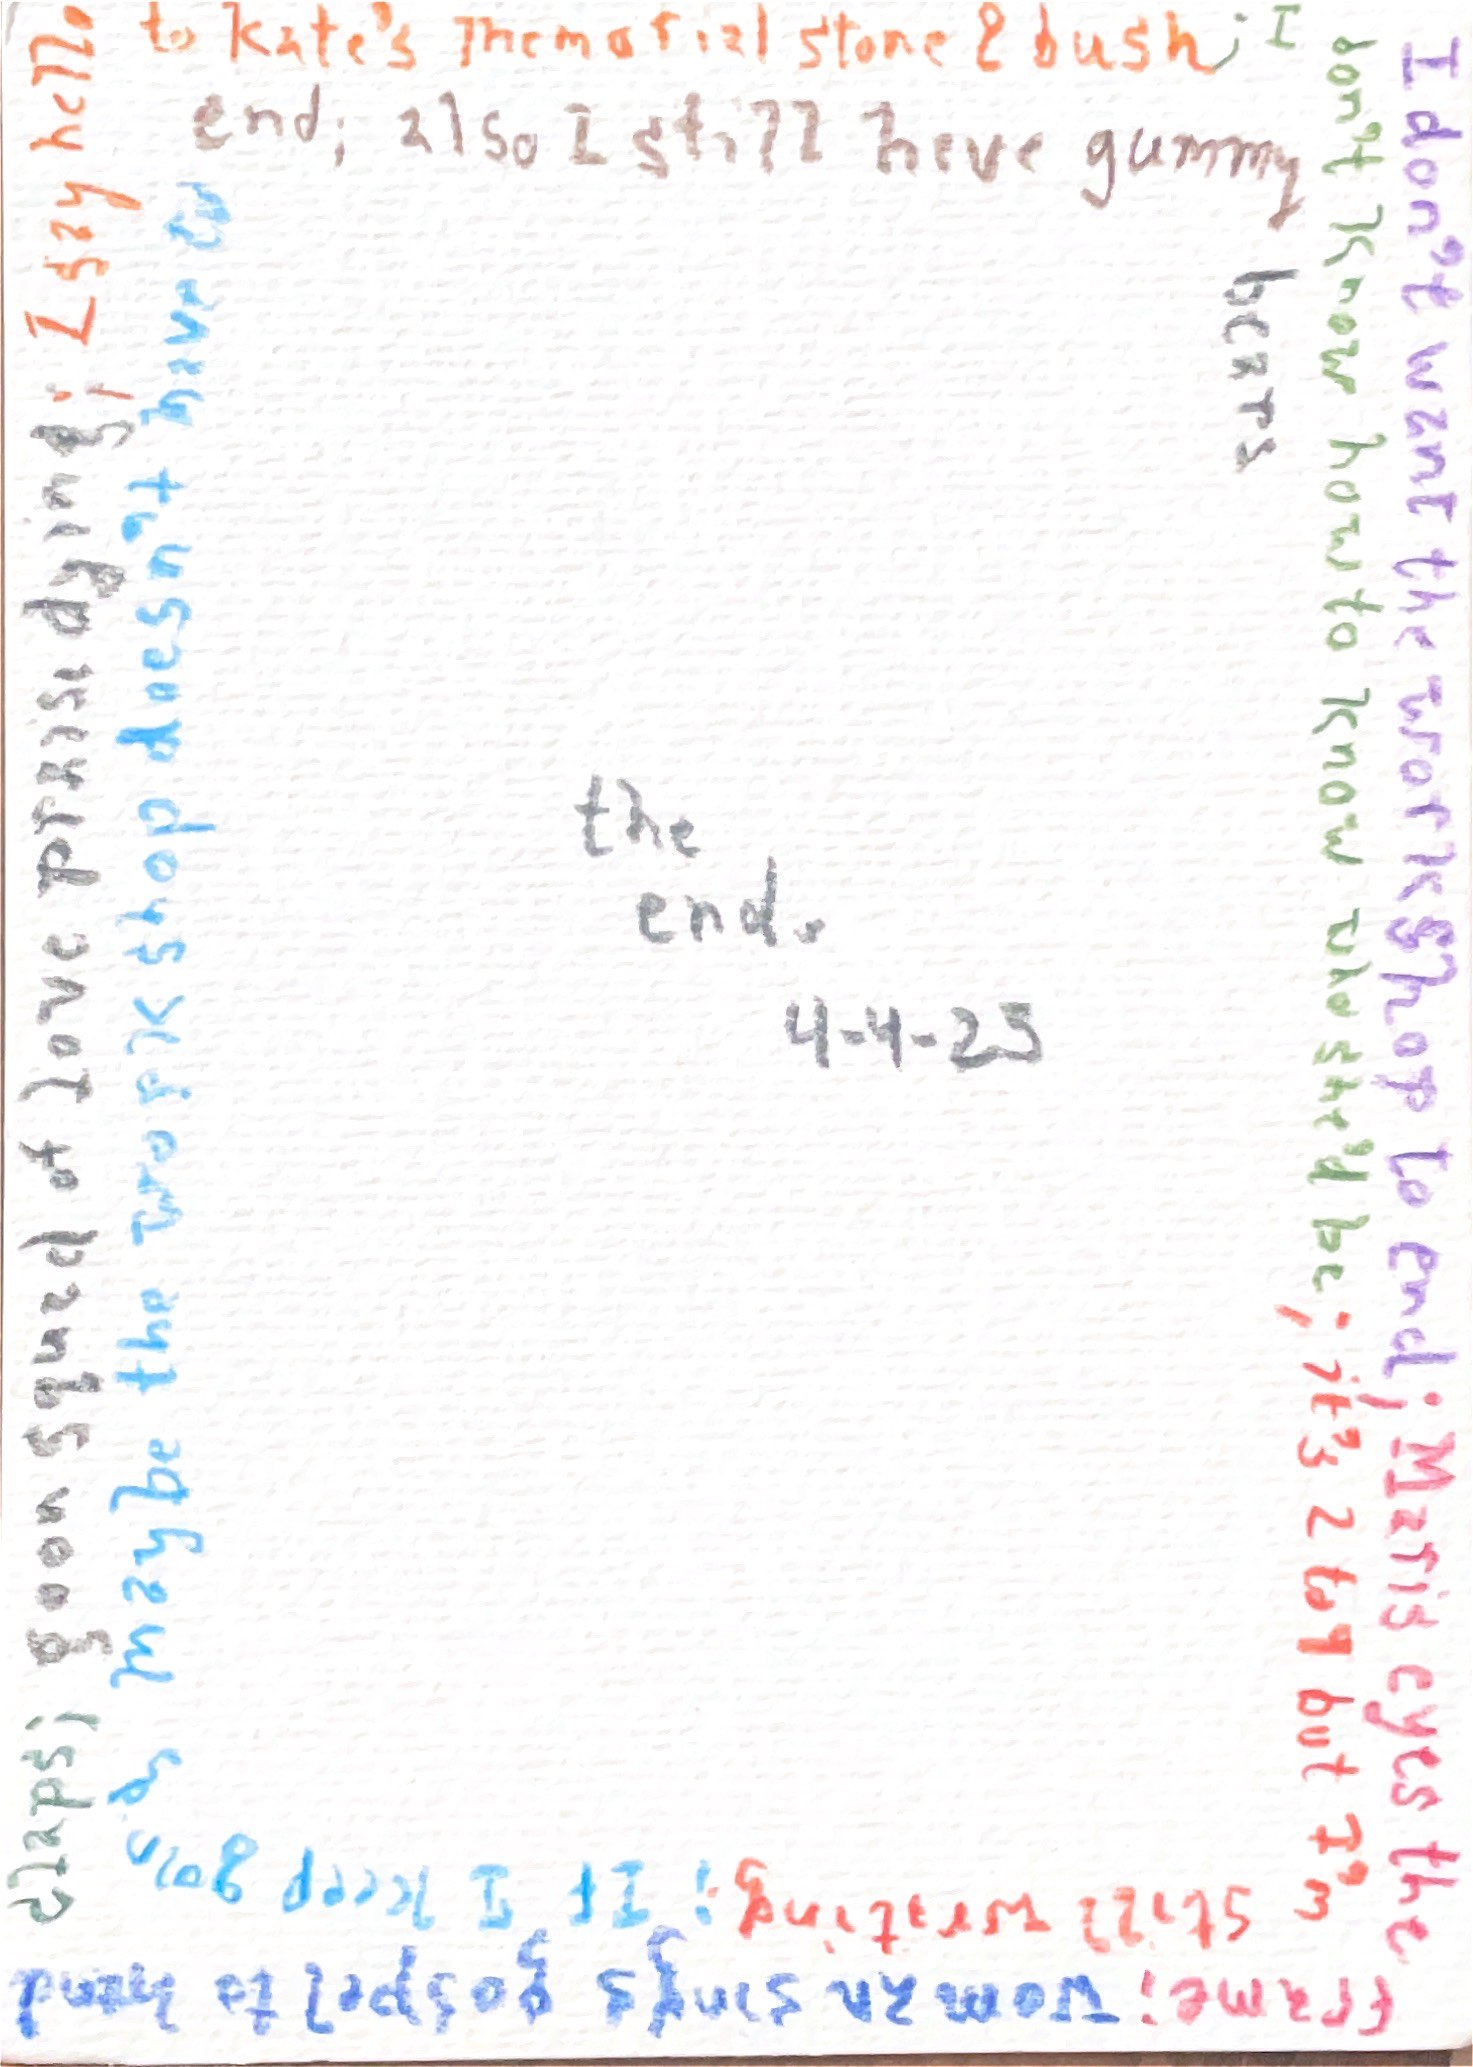 I don't want the workshop to end; Maris eyes the
frame; woman sings gospel to hand
claps; goon squad of love praise dying; I say hello
to Kate's memorial stone & bush; I
don't know how to know who she'd be; it's 2 to 9 but I'm
still writing; If I keep going
maybe the workshop doesn't have to
end; also I still have gummy
bears
the
end.
4-4-25